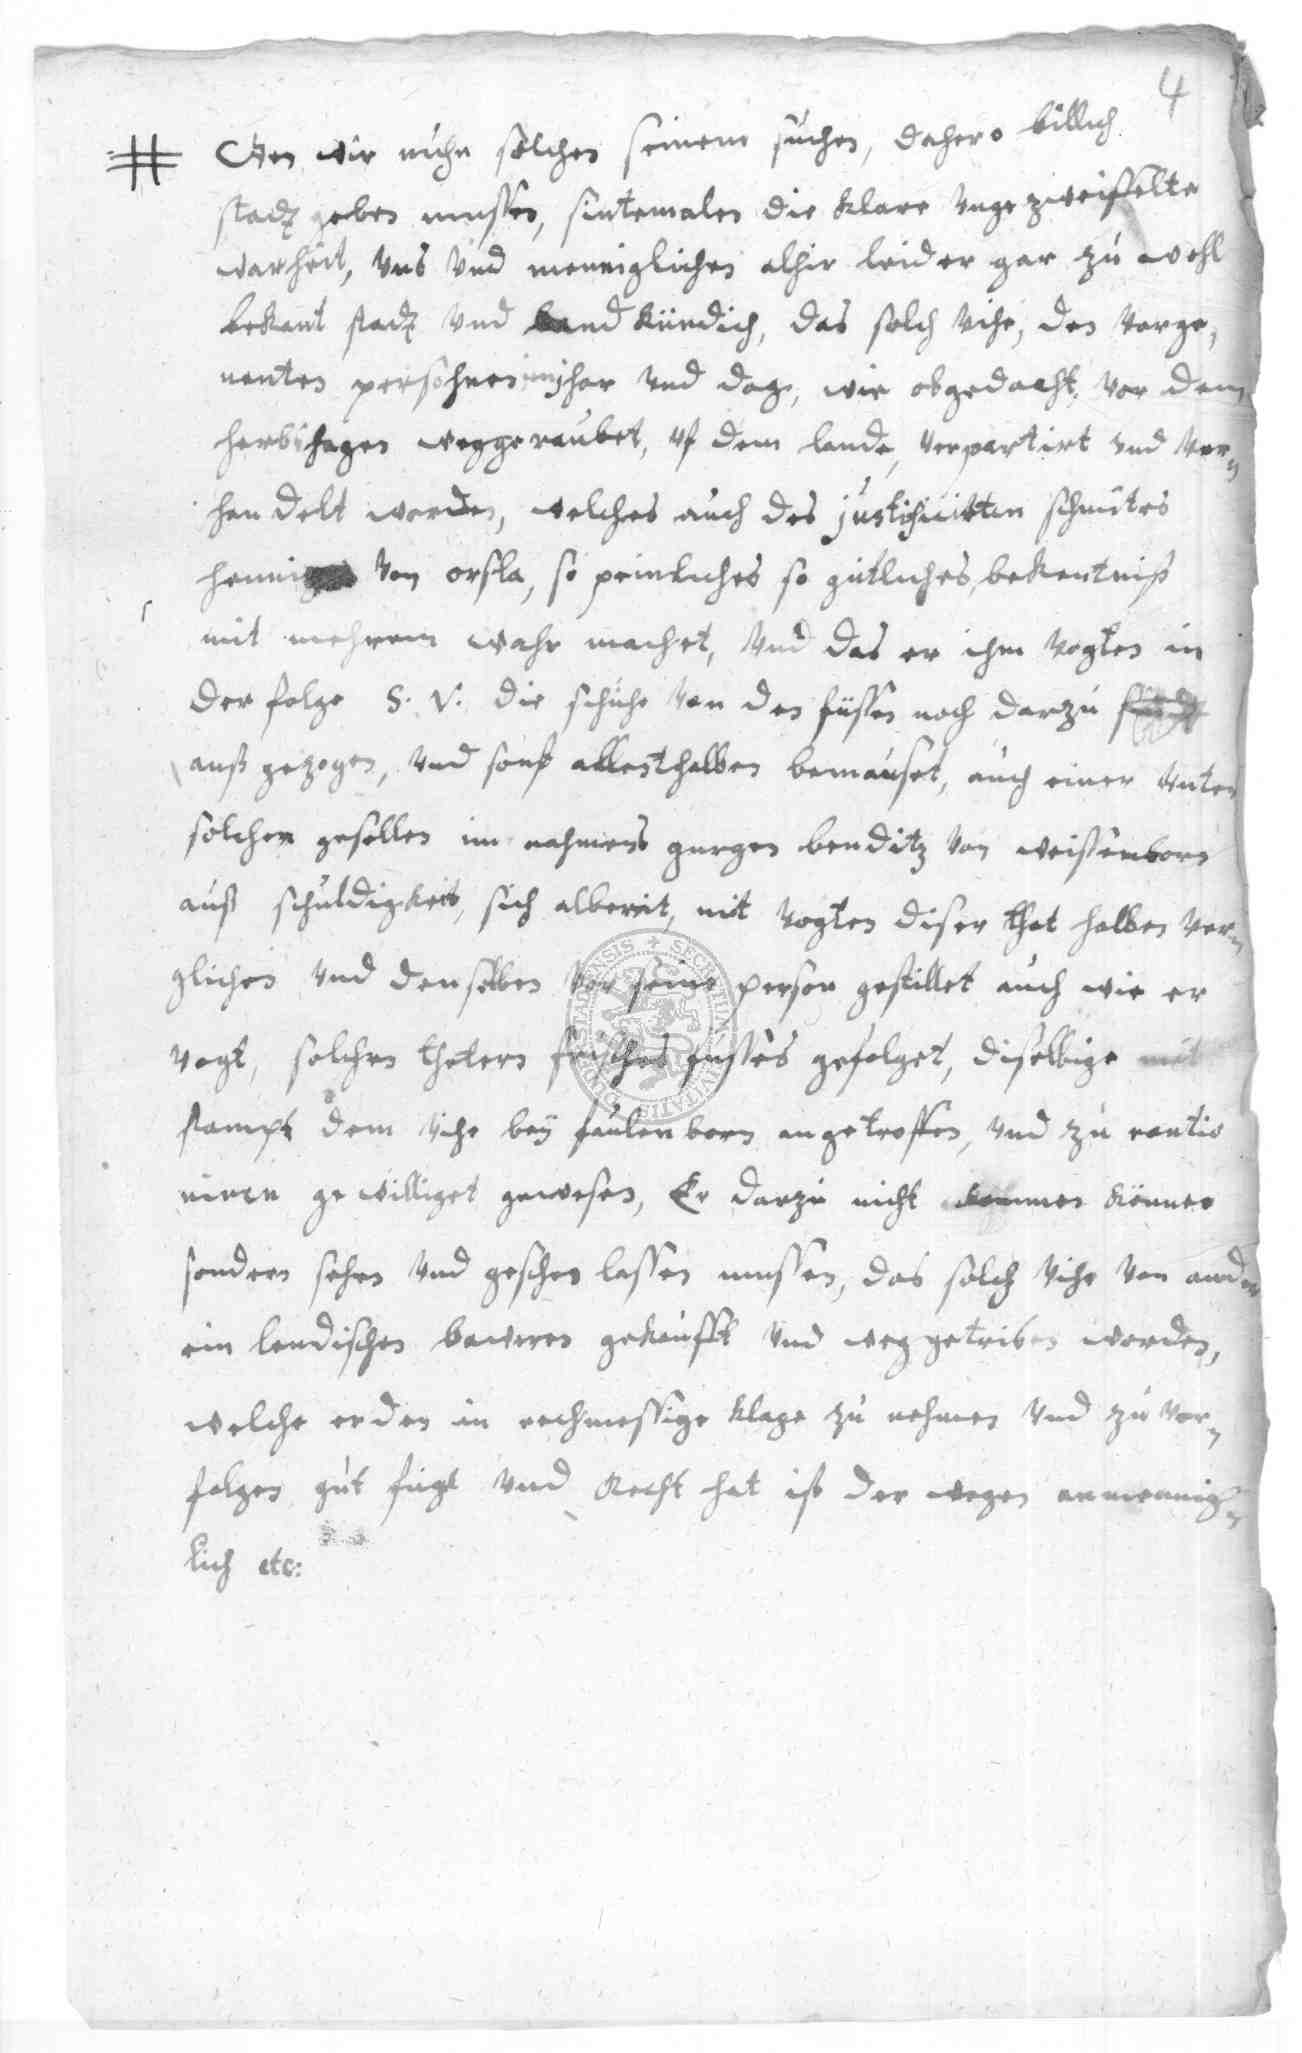 4
Wen wir nuhn solchen seinem suchen, dahero billich
stadt geben mussen, sintemalen die klare ungezweiffelte
warheit, uns und menniglichen alhir leider gar zu wohl
bekant stadt und landkündich, das solch vihe, den vorge,
nenten persohnen jhar und dag, wie obgedacht, vor dem
weggeraubet, uf dem lande, verpartirt und ver,
handelt worden, welches auch des justificirten schmites
von orsla, so peinliches so gütliches bekentniß
mit mehrem wahr machet, und das er ihm vogten in
der folge S. V. die schuhe von den füssen noch darzu
auß gezogen, und sonst allenthalben bemauset, auch einer unter
solchen gesellen im nahmens gurgen benditz von weissenborn
auß schuldigkeit, sich albereit, mit vogten diser that halben ver,
glichen und denselben vor seine person gestillet auch wie er
vogt, solchen thetern frisches fusses gefolget, diselbige
sampt dem vihe bey faulenborn angetroffen, und zu rantio
niren gewilliget gewesen, Er darzu nicht kommen können
sondern sehen und geschen lassen mussen, das solch vihe von andern
ein lendischen baweren gekaufft und weg getriben worden,
welche er den in rechmessige klage zu nehmen und zu vor,
folgen gut fug und Recht hat ist der wegen an mennig,
lich etc:
SECRETUM CIVITATIS